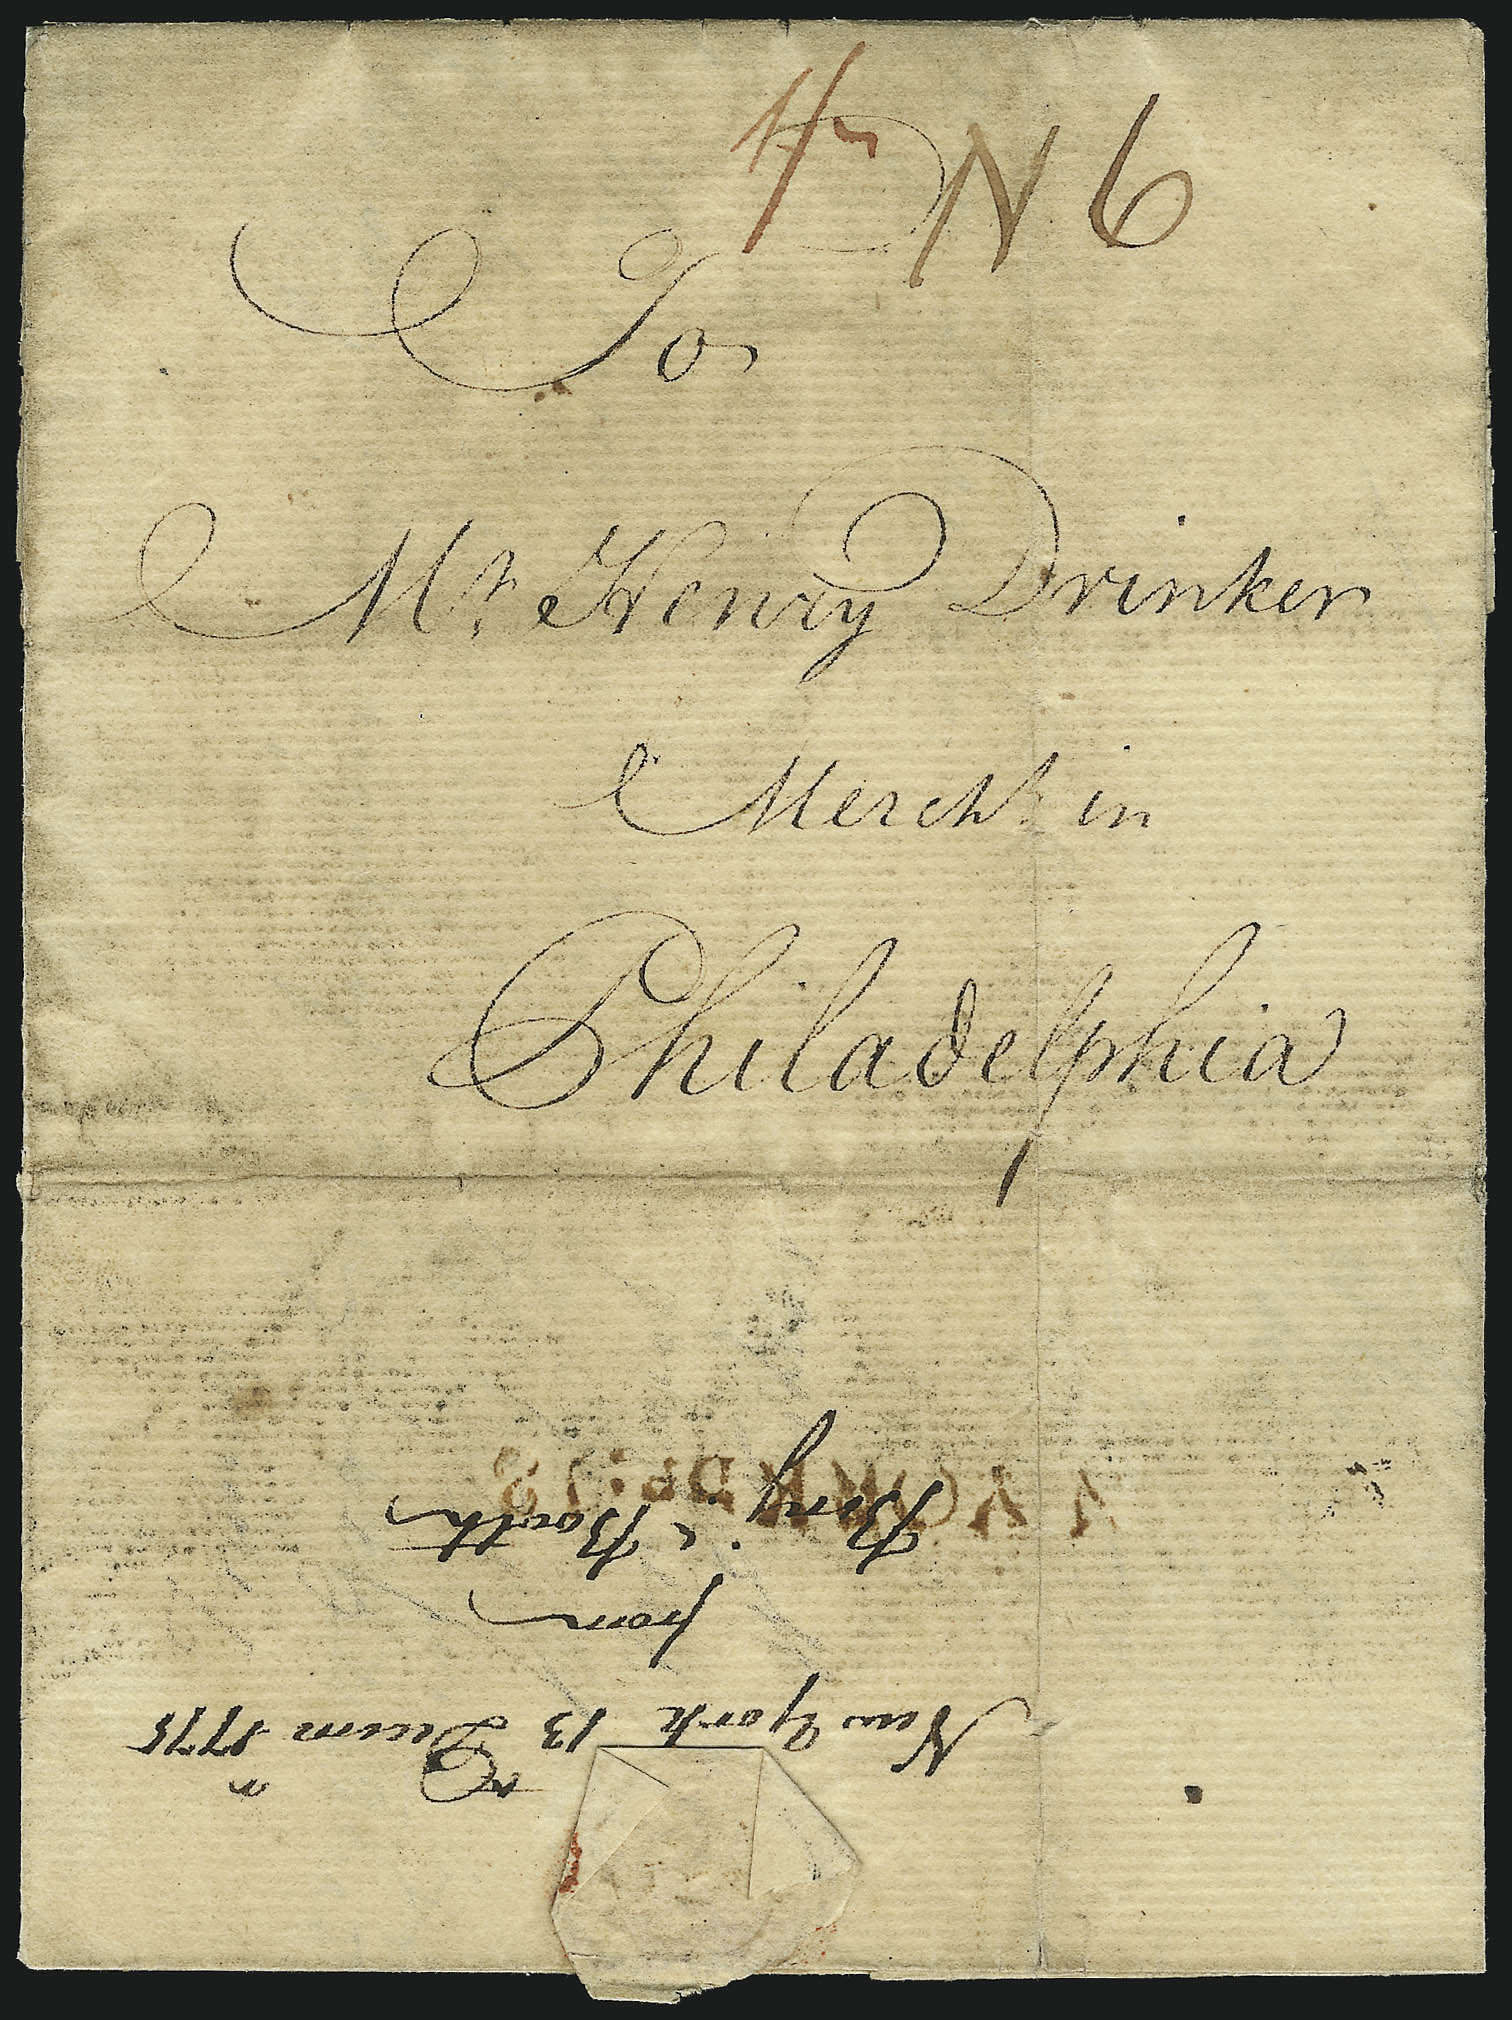 N 6
To
Mr. Henry Drinker
Mercht. in
Philadelphia
New York 13 Decem 1775
from
Benj. Booth
N*YORK DE: 13